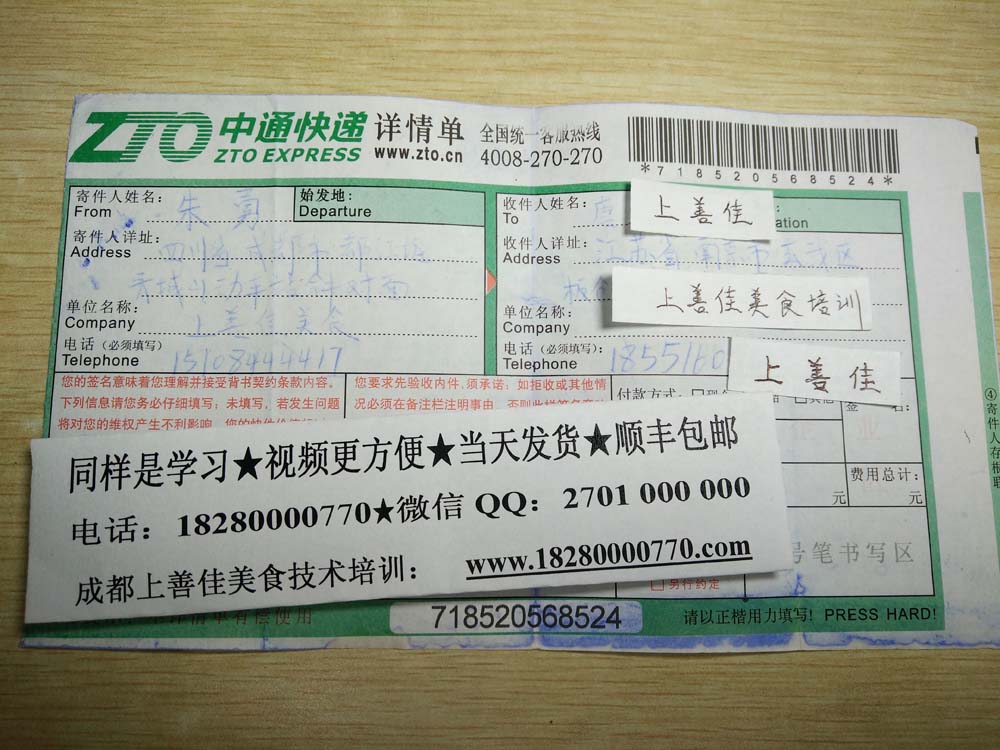 ZTO 中通快递 ZTO EXPRESS
详情单 www.zto.cn
全国统一客服热线 4008-270-270
*718520568524*
寄件人姓名: From 朱勇
始发地: Departure
寄件人详址: Address 四川省成都市都江堰
单位名称: Company 上善佳美食
电话(必须填写) Telephone 15108444417
收件人姓名: To
上善佳
收件人详址: Address 江苏省南京市玄武区
上善佳美食培训
单位名称: Company
电话(必须填写): Telephone 1855160
上善佳
您的签名意味着您理解并接受背书契约条款内容。
下列信息请您务必仔细填写;未填写,若发生问题
将对您的维权产生不利影响
您要求先验收内件,须承诺、如拒收或其他情
况必须在备注栏注明事由
付款方式:
费用总计:
元 元
同样是学习★视频更方便★当天发货★顺丰包邮
电话:18280000770★微信 QQ:2701 000 000
成都上善佳美食技术培训: www.18280000770.com
号笔书写区
另行约定
718520568524
请以正楷用力填写! PRESS HARD!